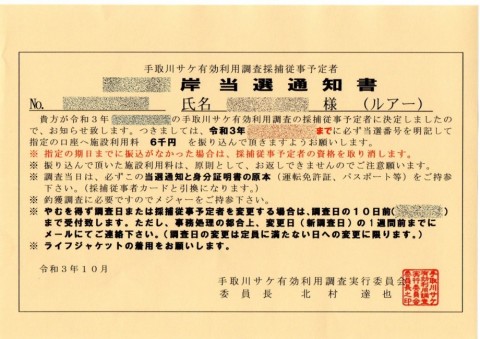 手取川サケ有効利用調査採捕従事予定者
岸当選通知書
No. 氏名 様 (ルアー)
貴方が令和3年 の手取川サケ有効利用調査の採捕従事予定者に決定しましたの
で、お知らせ致します。つきましては、令和3年 までに必ず当選番号を明記して
指定の口座へ施設利用料 6千円 を振り込んで頂きますようお願いします。
※ 指定の期日までに振込がなかった場合は、採捕従事予定者の資格を取り消します。
※ 振り込んで頂いた施設利用料は、原則として、お返しできませんのでご注意願います。
※ 調査当日は、必ずこの当選通知と身分証明書の原本(運転免許証、パスポート等)をご持参
下さい。(採捕従事者カードと引換になります。)
※ 釣獲調査に必要ですのでメジャーをご持参下さい。
※ やむを得ず調査日または採捕従事予定者を変更する場合は、調査日の10日前( )
まで受付致します。ただし、事務処理の都合上、変更日(新調査日)の1週間前までに
メールにてご連絡下さい。(調査日の変更は定員に満たない日への変更に限ります。)
※ ライフジャケットの着用をお願いします。
令和3年10月
手取川サケ有効利用調査実行委員会
委員長 北村 達也
手取川サケ
有効利用調査
実行委員会
委員長之印